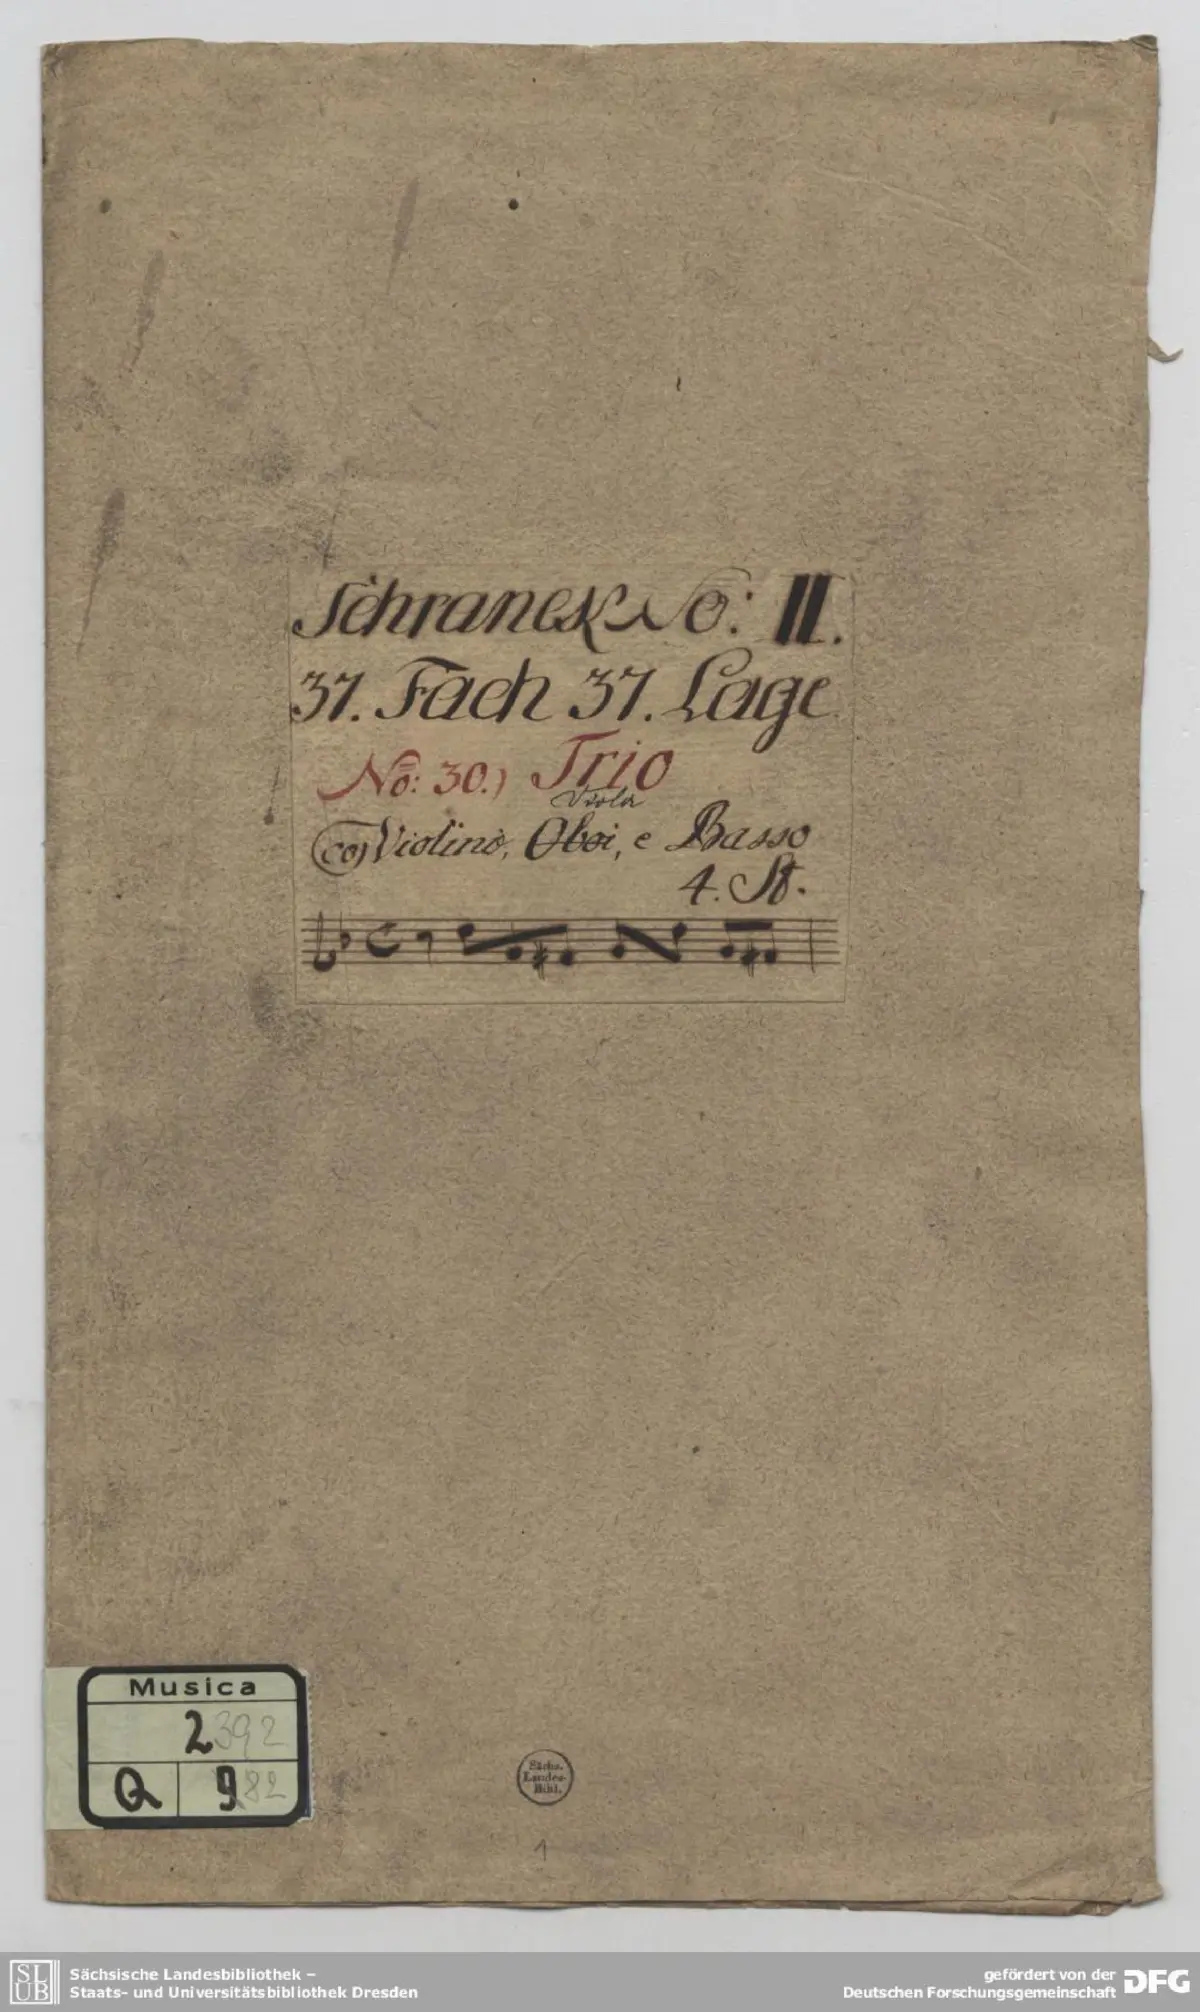 Schranck No: II.
37. Fach 37. Lage
No: 30.) Trio
Viola
co Violino, Oboi, e Basso
4. St.
Musica
2392
Q 982
Sächs.
Landes-
Bibl.
1
SLUB
Sächsische Landesbibliothek –
Staats- und Universitätsbibliothek Dresden
gefördert von der
Deutschen Forschungsgemeinschaft
DFG